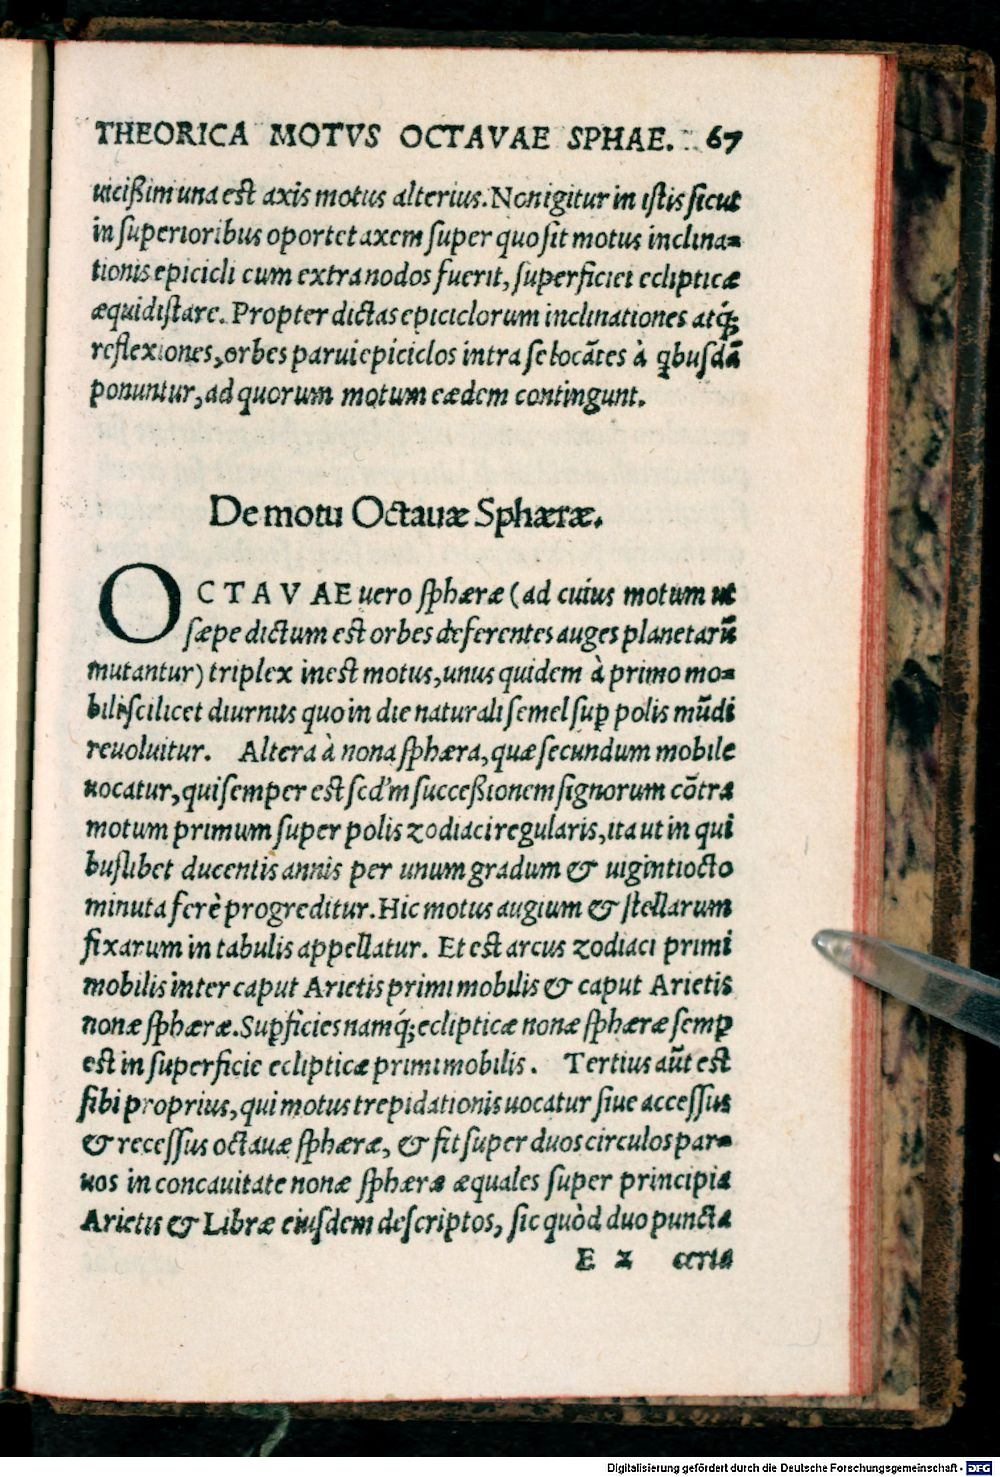 THEORICA MOTVS OCTAVAE SPHAE. 67
uicißim una est axis motus alterius. Non igitur in istis sicut
in superioribus oportet axem super quo fit motus inclina=
tionis epicicli cum extra nodos fuerit, superficiei eclipticæ
æquidistare. Propter dictas epiciclorum inclinationes atq́;
reflexiones, orbes parui epiciclos intra se locātes à qbusdā
ponuntur, ad quorum motum eædem contingunt.
De motu Octauæ Sphæræ.
OCTAVAE uero sphæræ (ad cuius motum ut
sæpe dictum est orbes deferentes auges planetarū
mutantur) triplex inest motus, unus quidem à primo mo=
bili scilicet diurnus quo in die naturali semel sup polis mūdi
reuoluitur. Altera à nona sphæra, quæ secundum mobile
uocatur, qui semper est scd'm succeßionem signorum cōtra
motum primum super polis zodiaci regularis, ita ut in qui
buslibet ducentis annis per unum gradum & uigintiocto
minuta ferè progreditur. Hic motus augium & stellarum
fixarum in tabulis appellatur. Et est arcus zodiaci primi
mobilis inter caput Arietis primi mobilis & caput Arietis
nonæ sphæræ. Supficies namq́; eclipticæ nonæ sphæræ semp
est in superficie eclipticæ primi mobilis. Tertius aūt est
sibi proprius, qui motus trepidationis uocatur siue accessus
& recessus octauæ sphæræ, & fit super duos circulos par=
uos in concauitate nonæ sphæræ æquales super principia
Arietis & Libræ eiusdem descriptos, sic quòd duo puncta
E 2 certa
Digitalisierung gefördert durch die Deutsche Forschungsgemeinschaft - DFG